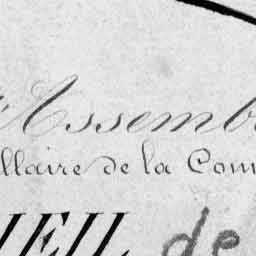 Assemb
llaire de la Com
UEIL de